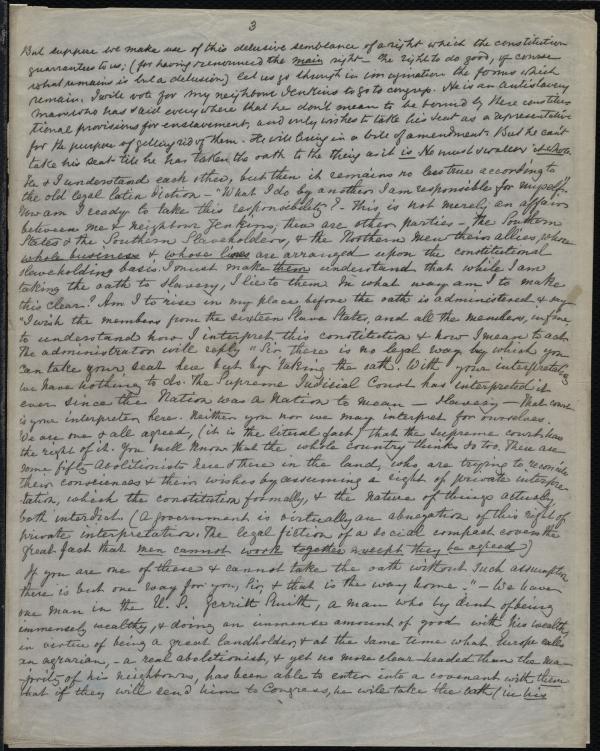 3
But suppose we make use of this delusive semblance of a right which the constitution
guarantees to us; (for having renounced the main right – the right to do good, of course
what remains is but a delusion) let us go through in imagination the forms which
remain. I will vote for my neighbour Jenkins to go to congress. He is an antislavery
man who has said everywhere that he don't mean to be bound by these constitu
tional provisions for enslavement, and only wishes to take his seat as a representative
for the purpose of getting rid of them. He will bring in a bill of amendment. But he can't
take his seat till he has taken the oath to the thing as it is. He must swallow it whole
He & I understand each other, but then it remains no less true according to
the old legal latin diction – "What I do by another I am responsible for myself."
Now am I ready to take this responsibility? – This is not merely an affair
between me & neighbour Jenkins; there are other parties – the Southern
States & the Southern Slaveholders, & the Northern men their allies, whose
whole business & whose lives are arranged upon the constitutional
slaveholding basis. I must make them understand that while I am
taking the oath to slavery, I lie to them. In what way am I to make
this clear? Am I to rise in my place before the oath is administered & say
"I wish the members from the sixteen Slave States, and all the members, in fine,
to understand how I interpret this constitution & how I mean to act.
The administrator will reply "Sir, there is no legal way by which you
can take your seat here but by taking the oath. With your interpretation
we have nothing to do. The Supreme Judicial Court has interpreted it
ever since the Nation was a Nation to mean – Slavery – that court
is your interpreter here. Neither you nor we may interpret for ourselves.
We are one & all agreed, (it is the literal fact) that the supreme court has
the right of it. You well know that the whole country thinks so too. There are
some fifty Abolitionists here & there in the land, who are trying to reconcile
their consciences & their wishes by assuming a right of private interpre-
tation, which the constitution formally, & the nature of things actually,
both interdict. (A government is virtually an abnegation of this right of
private interpretation. The legal fiction of a social compact covers the
great fact that men cannot work together except they be agreed.)
If you are one of these & cannot take the oath without such assumption
there is but one way for you, Sir, & that is the way home." – We have
one man in the U. S. Gerritt Smith, a man who by dint of being
immensely wealthy, & doing an immense amount of good with his wealth,
in virtue of being a great landholder, & at the same time what Europe calls
an agrarian, – a real abolitionist, & yet no more clear-headed than the ma-
jority of his neighbours, has been able to enter into a covenant with them
that if they will send him to Congress, he will take the oath (in his